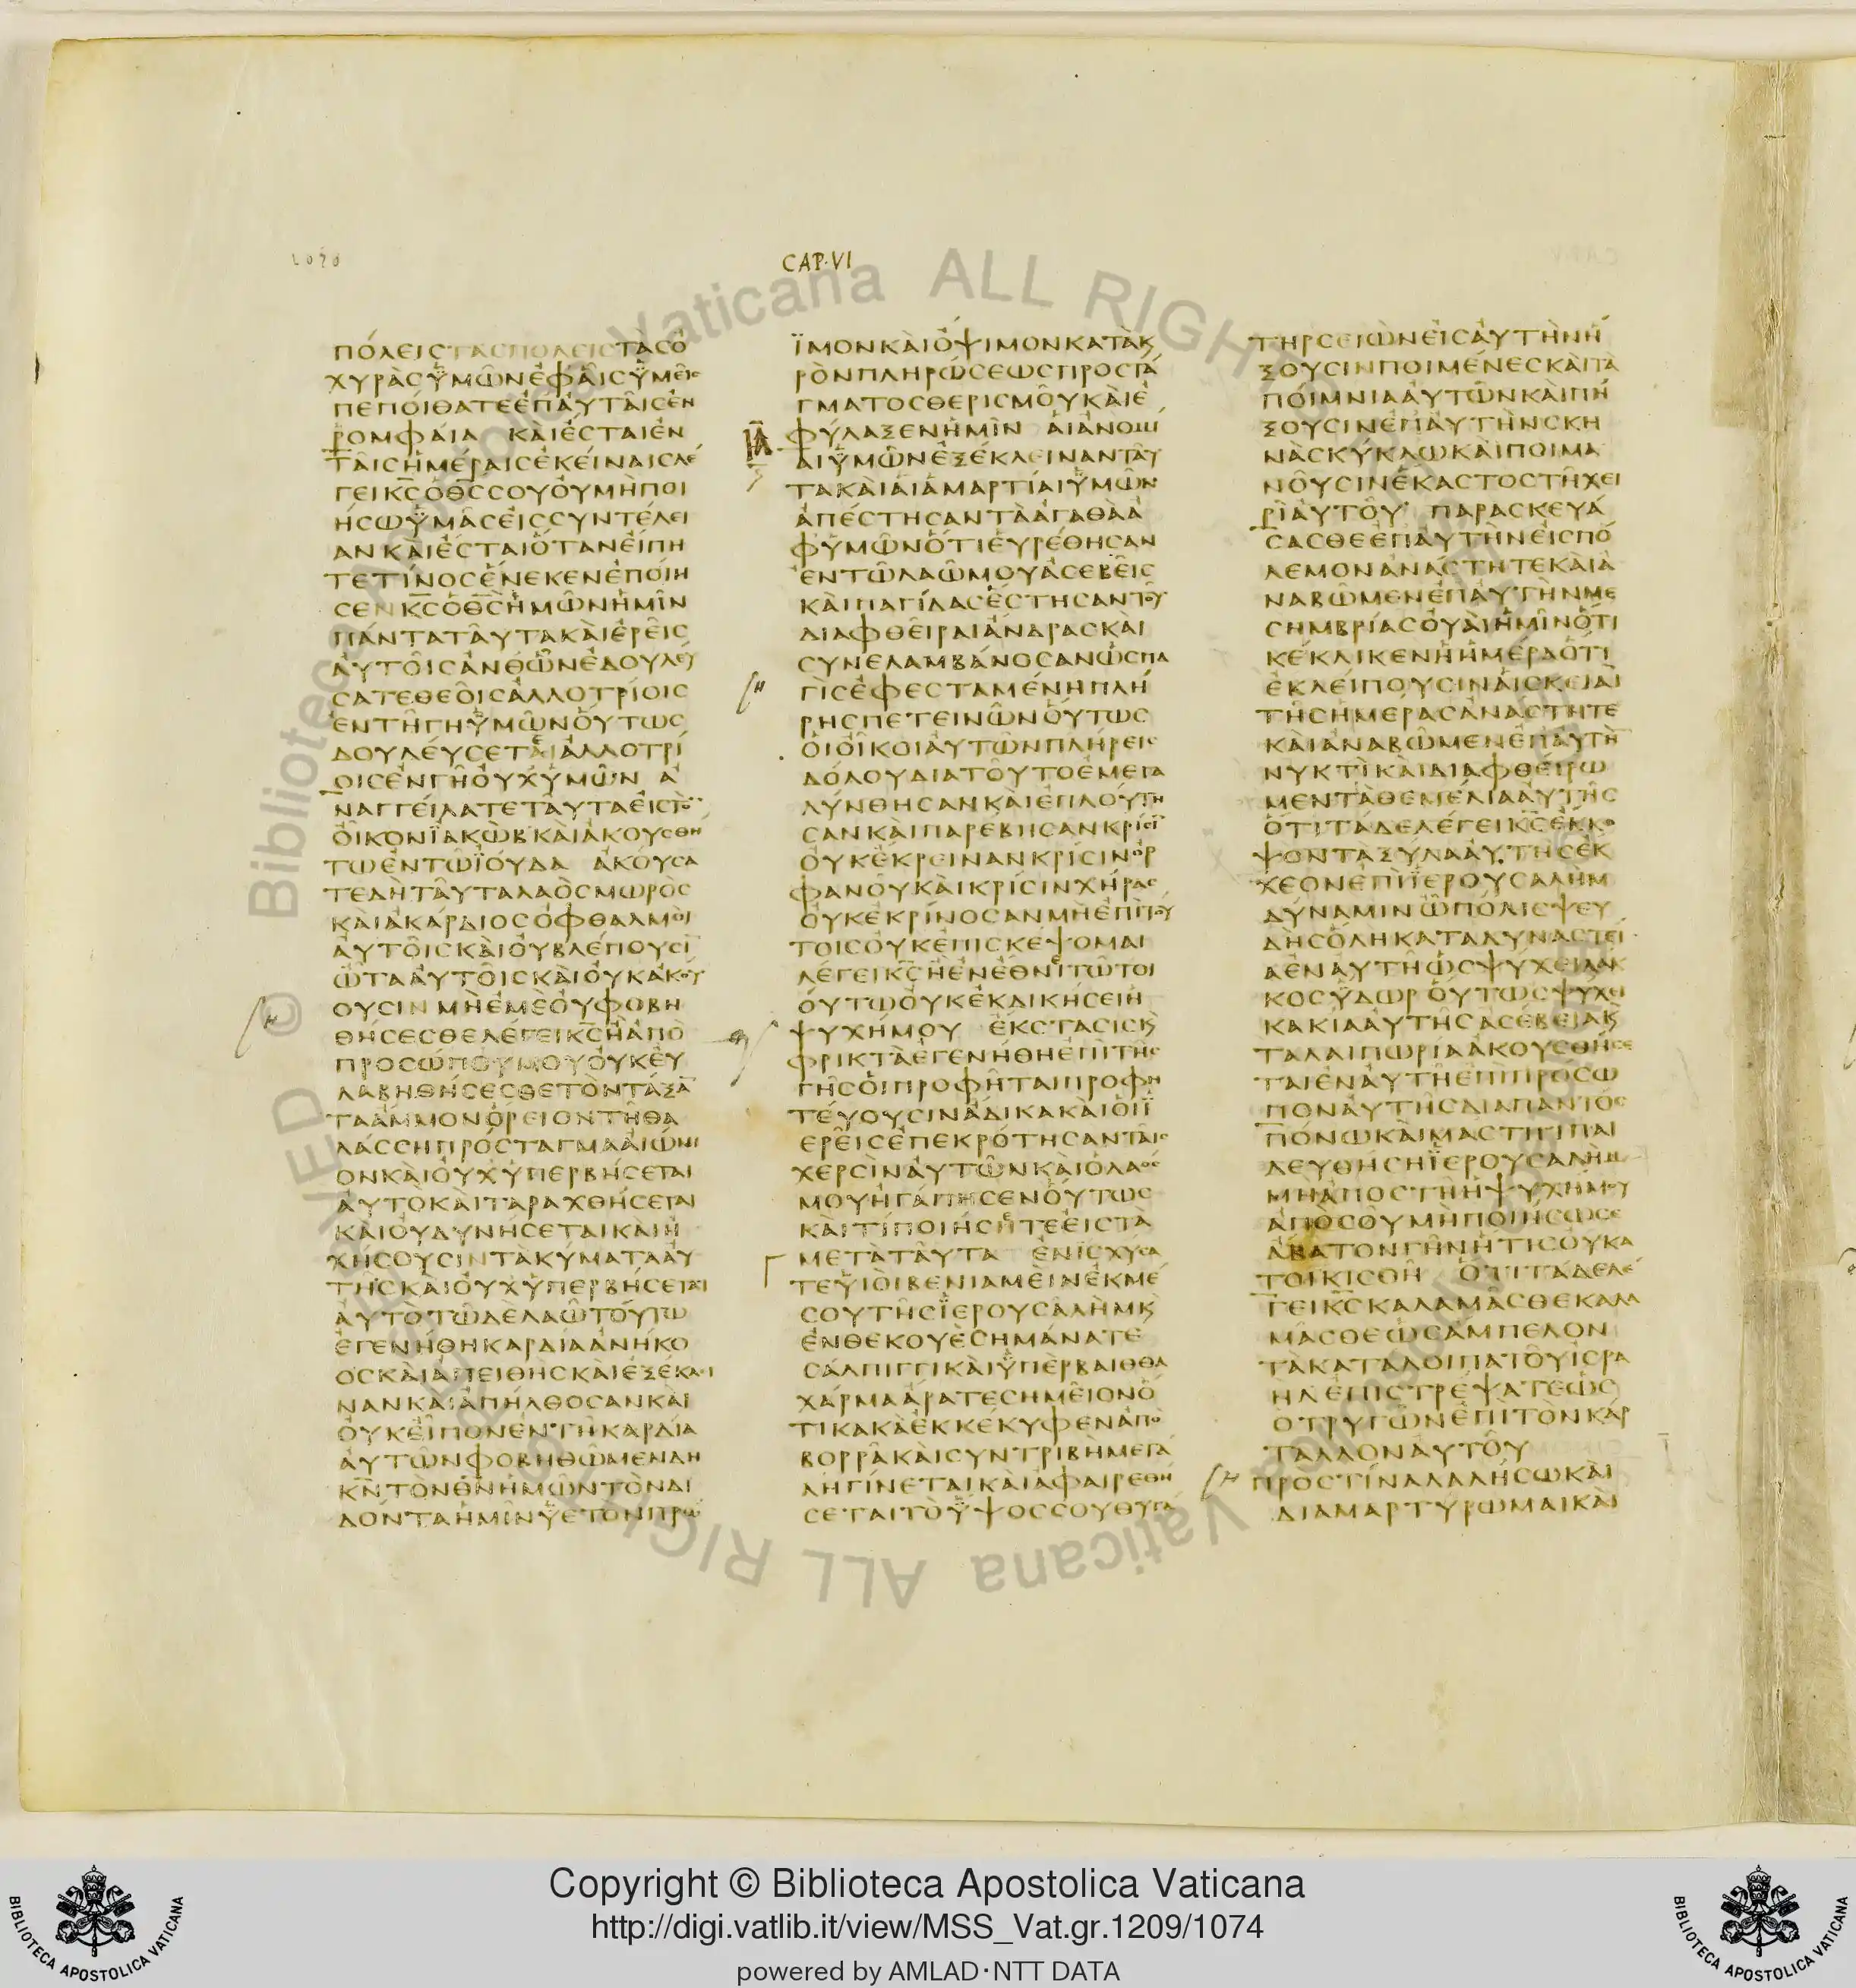 1070
CAP·VI
ΠΌΛΕΙΣ ΤΑΣ ΠΟΛΕΙΣ ΤᾺΣ Ὀ
ΧΥΡᾺΣ ὙΜΩ͂Ν ἘΦ ἉΙ͂Σ ὙΜΕΙ͂Σ
ΠΕΠΌΙΘΑΤΕ ἘΠ ἈΥΤΑΙ͂Σ ἘΝ
ῬΟΜΦΆΙΑ ΚΑῚ ἘΣΤΑΙ ἘΝ
ΤΑΙ͂Σ ἩΜΈΡΑΙΣ ἘΚΕΊΝΑΙΣ ΛΈ
ΓΕΙ Κ̅Σ̅ Ὁ Θ̅Σ̅ ΣΟΥ ΟΥ ΜῊ ΠΟΙ
ΉΣΩ ὙΜΑ͂Σ ἘΙΣ ΣΥΝΤΈΛΕΙ
ΑΝ ΚΑῚ ἘΣΤΑΙ ὍΤΑΝ ἘΙΠΗ
ΤΕ ΤΊΝΟΣ ἙΝΕΚΕΝ ἘΠΟΊΗ
ΣΕΝ Κ̅Σ̅ Ὁ Θ̅Σ̅ ἩΜΩ͂Ν ἩΜΙ͂Ν
ΠΆΝΤΑ ΤΑΥ͂ΤΑ ΚΑῚ ἘΡΕΙ͂Σ
ἈΥΤΟΙ͂Σ ἈΝΘ ὯΝ ἘΔΟΥΛΕΎ
ΣΑΤΕ ΘΕΟΙ͂Σ ἈΛΛΟΤΡΊΟΙΣ
ἘΝ ΤΗ͂ ΓΗ ὙΜΩ͂Ν ὍΥΤΩΣ
ΔΟΥΛΕΎΣΕΤΑΙ ἈΛΛΟΤΡΊ
ΟΙΣ ἘΝ ΓΗ͂ ὈΥΧ ὙΜΩ͂Ν Ἀ
ΝΑΓΓΕΊΛΑΤΕ ΤΑΥΤΑ ἘΙΣ ΤῸΝ
ὈΙ͂ΚΟΝ ΪΑΚῺΒ ΚΑῚ ἈΚΟΥΣΘΗ
ΤΩ ἘΝ ΤΩ ΪΟΎΔΑ ἈΚΟΎΣΑ
ΤΕ ΔῊ ΤΑΥ͂ΤΑ ΛΑῸΣ ΜΩΡΟΣ
ΚΑῚ ἈΚΆΡΔΙΟΣ ὈΦΘΑΛΜΟῚ
ἈΥΤΟΙ͂Σ ΚΑῚ ὈΥ ΒΛΈΠΟΥΣΙ̅
ὨΤΑ ἈΥΤΟΙ͂Σ ΚΑῚ ὈΥΚ ἈΚΟΎ
ΟΥΣΙΝ ΜῊ ἘΜῈ ὈΥ ΦΟΒΗ
ΘΉΣΕΣΘΕ ΛΈΓΕΙ Κ̅Σ̅ Ἢ ἈΠΟ
ΠΡΟΣΏΠΟΥ ΜΟΥ ὈΥΚ ἘΥ
ΛΑΒΗΘΉΣΕΣΘΕ ΤῸΝ ΤΆΞΑ̅
ΤΑ ἌΜΜΟΝ ὍΡΕΙΟΝ ΤΗ͂ ΘΑ
ΛΆΣΣΗ ΠΡΌΣΤΑΓΜΑ ἈΙΏΝΙ
ΟΝ ΚΑῚ ὈΥΧ ὙΠΕΡΒΉΣΕΤΑΙ
ἈΥΤΟ ΚΑῚ ΤΑΡΑΧΘΉΣΕΤΑΙ
ΚΑῚ ὈΥ ΔΥΝΉΣΕΤΑΙ ΚΑΙ Ἠ
ΧΉΣΟΥΣΙΝ ΤᾺ ΚΎΜΑΤΑ ἈΥ
ΤΗ͂Σ ΚΑῚ ὈΥΧ ὙΠΕΡΒΉΣΕΤΑΙ
ἈΥΤῸ ΤΩ͂ ΔῈ ΛΑΩ͂ ΤΟΎΤΩ
ἘΓΕΝΉΘΗ ΚΑΡΔΊΑ ἈΝΉΚΟ
ΟΣ ΚΑῚ ἈΠΕΙΘῊΣ ΚΑῚ ἘΞΈΚΛΙ
ΝΑΝ ΚΑῚ ἈΠΉΛΘΟΣΑΝ ΚΑῚ
ὈΥΚ ἘΙ͂ΠΟΝ ἘΝ ΤΗ͂ ΚΑΡΔΊΑ
ἈΥΤΩ͂Ν ΦΟΒΗΘΩ͂ΜΕΝ ΔΗ
Κ̅Ν̅ ΤῸΝ Θ̅Ν̅ ἩΜΩ͂Ν ΤῸΝ ΔΙ
ΔΌΝΤΑ ἩΜΙ͂Ν ὙΕΤΟΝ ΠΡΩ
ΪΜΟΝ ΚΑῚ ὌΨΙΜΟΝ ΚΑΤᾺ Κ
ΡῸΝ ΠΛΗΡΏΣΕΩΣ ΠΡΟΣΤΆ
ΓΜΑΤΟΣ ΘΕΡΙΣΜΟΥ͂ ΚΑῚ Ἐ
ΦΎΛΑΞΕΝ ἩΜΙ͂Ν ἉΙ ἈΝΟΜΙ
ΙΑ
ΑΙ ὙΜΩ͂Ν ἘΞΈΚΛΕΙΝΑΝ ΤΑΥ͂
ΤΑ ΚΑῚ ἉΙ ἉΜΑΡΤΊΑΙ ὙΜΩ͂Ν
ἈΠΈΣΤΗΣΑΝ ΤᾺ ἈΓΑΘᾺ Ἀ
Φ ὙΜΩ͂Ν ὍΤΙ ἘΥΡΈΘΗΣΑΝ
ἘΝ ΤΩ͂ ΛΑΩ͂ ΜΟΥ ἈΣΕΒΕΙ͂Σ
ΚΑῚ ΠΑΓΊΔΑΣ ἘΣΤΗΣΑΝ ΤΟΥ͂
ΔΙΑΦΘΕΙ͂ΡΑΙ ἈΝΔΡΑΣ ΚΑῚ
ΣΥΝΕΛΑΜΒΆΝΟΣΑΝ ὩΣ ΠΑ
ΓῚΣ ἘΦΕΣΤΑΜΈΝΗ ΠΛΉ
ΡΗΣ ΠΕΤΕΙΝΩ͂Ν ὍΥΤΩΣ
ὉΙ ὈΙ͂ΚΟΙ ἈΥΤΩ͂Ν ΠΛΉΡΕΙΣ
ΔΌΛΟΥ ΔΙΑ ΤΟΥ͂ΤΟ ἘΜΕΓΑ
ΛΎΝΘΗΣΑΝ ΚΑῚ ἘΠΛΟΎΤΗ
ΣΑΝ ΚΑῚ ΠΑΡΈΒΗΣΑΝ ΚΡΊΣΙ̅
ὈΥΚ ἘΚΡΕΙΝΑΝ ΚΡΊΣΙΝ ὈΡ
ΦΑΝΟΥ͂ ΚΑῚ ΚΡΊΣΙΝ ΧΉΡΑΣ
ὈΥΚ ἘΚΡΊΝΟΣΑΝ ΜῊ ἘΠῚ ΤΟΎ
ΤΟΙΣ ὈΥΚ ἘΠΙΣΚΈΨΟΜΑΙ
ΛΈΓΕΙ Κ̅Σ̅ Ἢ ἘΝ ἘΘΝΕΙ ΤΩ͂ ΤΟΙ
ΟΎΤΩ ὈΥΚ ἘΚΔΙΚΉΣΕΙ Ἡ
ΨΥΧΉ ΜΟΥ ἘΚΣΤΑΣΙΣ Κ
ΦΡΙΚΤᾺ ἘΓΕΝΉΘΗ ἘΠῚ ΤΗ͂Σ
ΓΗ͂Σ ὉΙ ΠΡΟΦΗ͂ΤΑΙ ΠΡΟΦΗ
ΤΈΥΟΥΣΙΝ ἈΔΙΚΑ ΚΑῚ ὉΙ Ϊ
ΕΡΕΙ͂Σ ἘΠΕΚΡΌΤΗΣΑΝ ΤΑΙ͂Σ
ΧΕΡΣῚΝ ἈΥΤΩ͂Ν ΚΑῚ Ὁ ΛΑΟΣ
ΜΟΥ ἨΓΆΠΗΣΕΝ ὍΥΤΩΣ
ΚΑῚ ΤΊ ΠΟΙΉΣΗΤΕ ἘΙΣ ΤᾺ
ΜΕΤᾺ ΤΑΥ͂ΤΑ ἘΝΙΣΧΎΣΑ
ΤΕ ὙΙΟῚ ΒΕΝΙΑΜΕῚΝ ἘΚ ΜΈ
ΣΟΥ ΤΗ͂Σ ΪΕΡΟΥΣΑΛῊΜ Κ
ἘΝ ΘΕΚΟΥῈ ΣΗΜΆΝΑΤΕ
ΣΆΛΠΙΓΓΙ ΚΑῚ ὙΠῈΡ ΒΑΙΘΘΑ
ΧΆΡΜΑ ἈΡΑΤΕ ΣΗΜΕΙ͂ΟΝ Ὅ
ΤΙ ΚΑΚᾺ ἘΚΚΈΚΥΦΕΝ ἈΠῸ
ΒΟΡΡΑ͂ ΚΑῚ ΣΥΝΤΡΙΒῊ ΜΕΓΆ
ΛΗ ΓΊΝΕΤΑΙ ΚΑῚ ἈΦΑΙΡΕΘΉ
ΣΕΤΑΙ ΤῸ ὙΨΟΣ ΣΟΥ ΘΥΓΆ
ΤΗΡ ΣΕΙῺΝ ἘΙΣ ἈΥΤῊΝ Ἥ
ΞΟΥΣΙΝ ΠΟΙΜΈΝΕΣ ΚΑῚ ΤΑ
ΠΟΊΜΝΙΑ ἈΥΤΩ͂Ν ΚΑῚ ΠΉ
ΞΟΥΣΙΝ ἘΠ ἈΥΤῊΝ ΣΚΗ
ΝᾺΣ ΚΎΚΛΩ ΚΑῚ ΠΟΙΜΑ
ΝΟΥ͂ΣΙΝ ἘΚΑΣΤΟΣ ΤΗ͂ ΧΕΙ
ΡῚ ἈΥΤΟΥ͂ ΠΑΡΑΣΚΕΥΆ
ΣΑΣΘΕ ἘΠ ἈΥΤῊΝ ἘΙΣ ΠΌ
ΛΕΜΟΝ ἈΝΆΣΤΗΤΕ ΚΑῚ Ἀ
ΝΑΒΩ͂ΜΕΝ ἘΠ ἈΥΤῊΝ ΜΕ
ΣΗΜΒΡΊΑΣ ὈΥΑῚ ἩΜΙ͂Ν ὍΤΙ
ΚΈΚΛΙΚΕΝ Ἡ ἩΜΈΡΑ ὍΤΙ
ἘΚΛΕΊΠΟΥΣΙΝ ἉΙ ΣΚΙΑῚ
ΤΗ͂Σ ἩΜΕΡΑΣ ἈΝΆΣΤΗΤΕ
ΚΑῚ ἈΝΑΒΩ͂ΜΕΝ ἘΠ ἈΥΤῊ
ΝΥΚΤῚ ΚΑῚ ΔΙΑΦΘΕΊΡΩ
ΜΕΝ ΤᾺ ΘΕΜΈΛΙΑ ἈΥΤΗ͂Σ
ὍΤΙ ΤΆΔΕ ΛΈΓΕΙ Κ̅Σ̅ ἘΚΚΟ
ΨΟΝ ΤᾺ ΞΎΛΑ ἈΥΤΗΣ ἘΚ
ΧΕΟΝ ἘΠῚ ΪΕΡΟΥΣΑΛῊΜ
ΔΎΝΑΜΙΝ Ὦ ΠΌΛΙΣ ΨΕΥ
ΔῊΣ ὍΛΗ ΚΑΤΑΔΥΝΑΣΤΕΊ
Α ἘΝ ἈΥΤΗ͂ ὩΣ ΨΥΧΕΙ ΛΑΚ
ΚΟΣ ὙΔΩΡ ὍΥΤΩΣ ΨΥΧΕΙ
ΚΑΚΊΑ ἈΥΤΗ͂Σ ἈΣΈΒΕΙΑ Κ
ΤΑΛΑΙΠΩΡΊΑ ἈΚΟΥΣΘΉΣΕ
ΤΑΙ ἘΝ ἈΥΤΗ͂ ἘΠῚ ΠΡΟΣΩ
ΠΟΝ ἈΥΤΗ͂Σ ΔΙΑΠΑΝΤΌΣ
ΠΌΝΩ ΚΑῚ ΜΑΣΤΙΓΙ ΠΑΙ
ΔΕΥΘΉΣΗ ΪΕΡΟΥΣΑΛΗΜ
ΜῊ ἈΠΟΣΤΗ͂ Ἡ ΨΥΧΉ ΜΟΥ
ἈΠῸ ΣΟΥ͂ ΜῊ ΠΟΙΉΣΩ ΣΕ
ἈΒΑΤΟΝ ΓΗ͂Ν ἩΤΙΣ ΟΥ ΚΑ
ΤΟΙΚΙΣΘΗ͂ ὍΤΙ ΤΆΔΕ ΛΈ
ΓΕΙ Κ̅Σ̅ ΚΑΛΑΜΑ͂ΣΘΕ ΚΑΛΑ
ΜΑ͂ΣΘΕ ὩΣ ἈΜΠΕΛΟΝ
ΤᾺ ΚΑΤΑΛΟΙΠΑ ΤΟΥ͂ ἸΣΡΑ
ΗΛ ἘΠΙΣΤΡΈΨΑΤΕ ὩΣ
Ὁ ΤΡΥΓΩ͂Ν ἘΠῚ ΤῸΝ ΚΆΡ
ΤΑΛΛΟΝ ἈΥΤΟΥ͂
ΠΡΟΣ ΤΊΝΑ ΛΑΛΉΣΩ ΚΑῚ
ΔΙΑΜΑΡΤΎΡΩΜΑΙ ΚΑῚ
Copyright © Biblioteca Apostolica Vaticana
http://digi.vatlib.it/view/MSS_Vat.gr.1209/1074
powered by AMLAD·NTT DATA
BIBLIOTECA APOSTOLICA VATICANA
BIBLIOTECA APOSTOLICA VATICANA